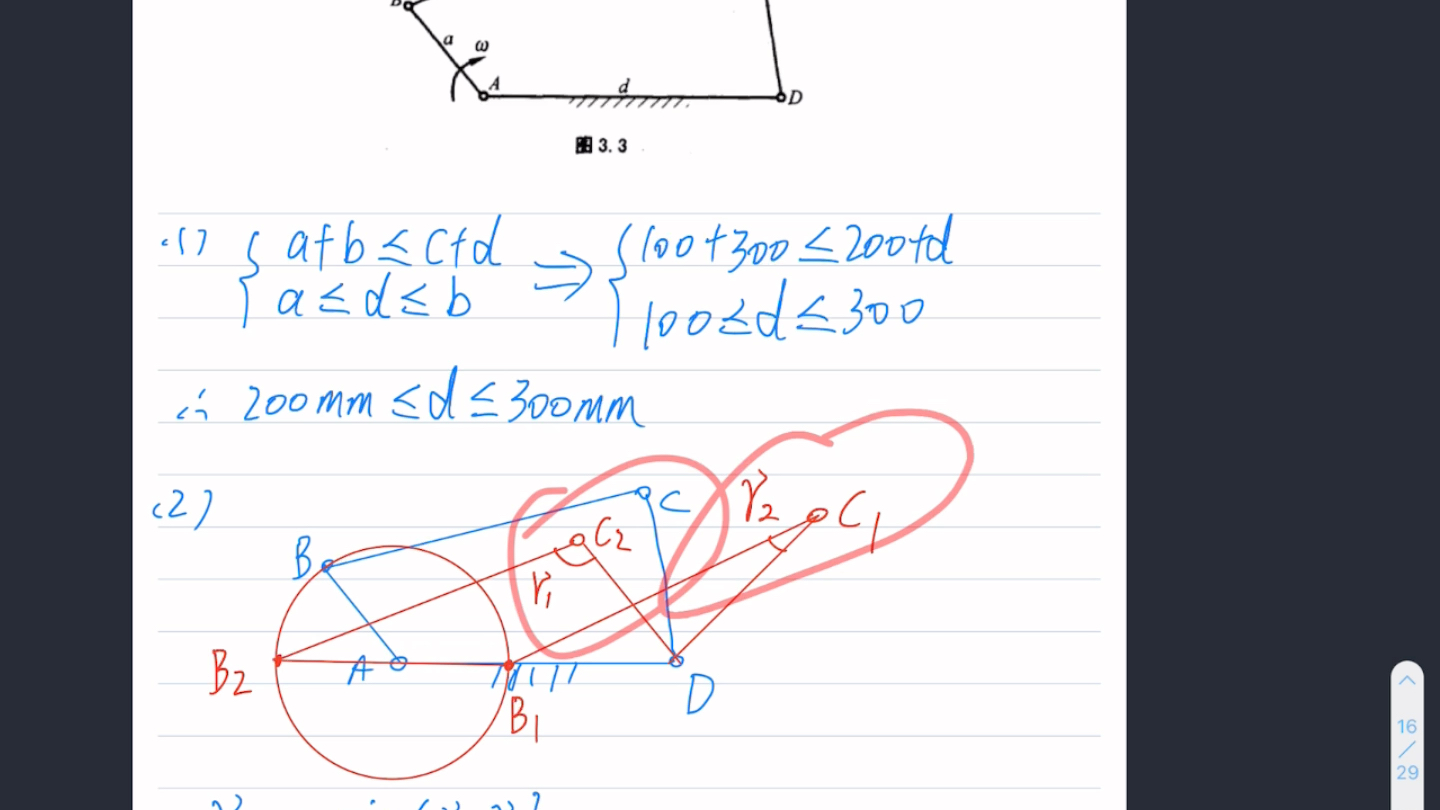 a
ω
A
d
D
图 3.3
(1) { a+b≤c+d ⇒ { 100+300≤200+d
a≤d≤b 100≤d≤300
∴ 200mm≤d≤300mm
(2)
C
γ2
C1
B
C2
γ1
B2
A
D
B1
16
/
29